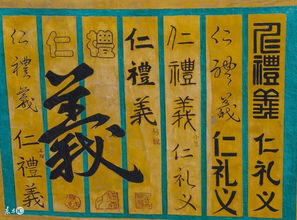 仁禮義仁礼义
仁禮義仁礼义
仁禮義仁礼义
仁禮義
禮
仁
義
仁禮義仁禮義